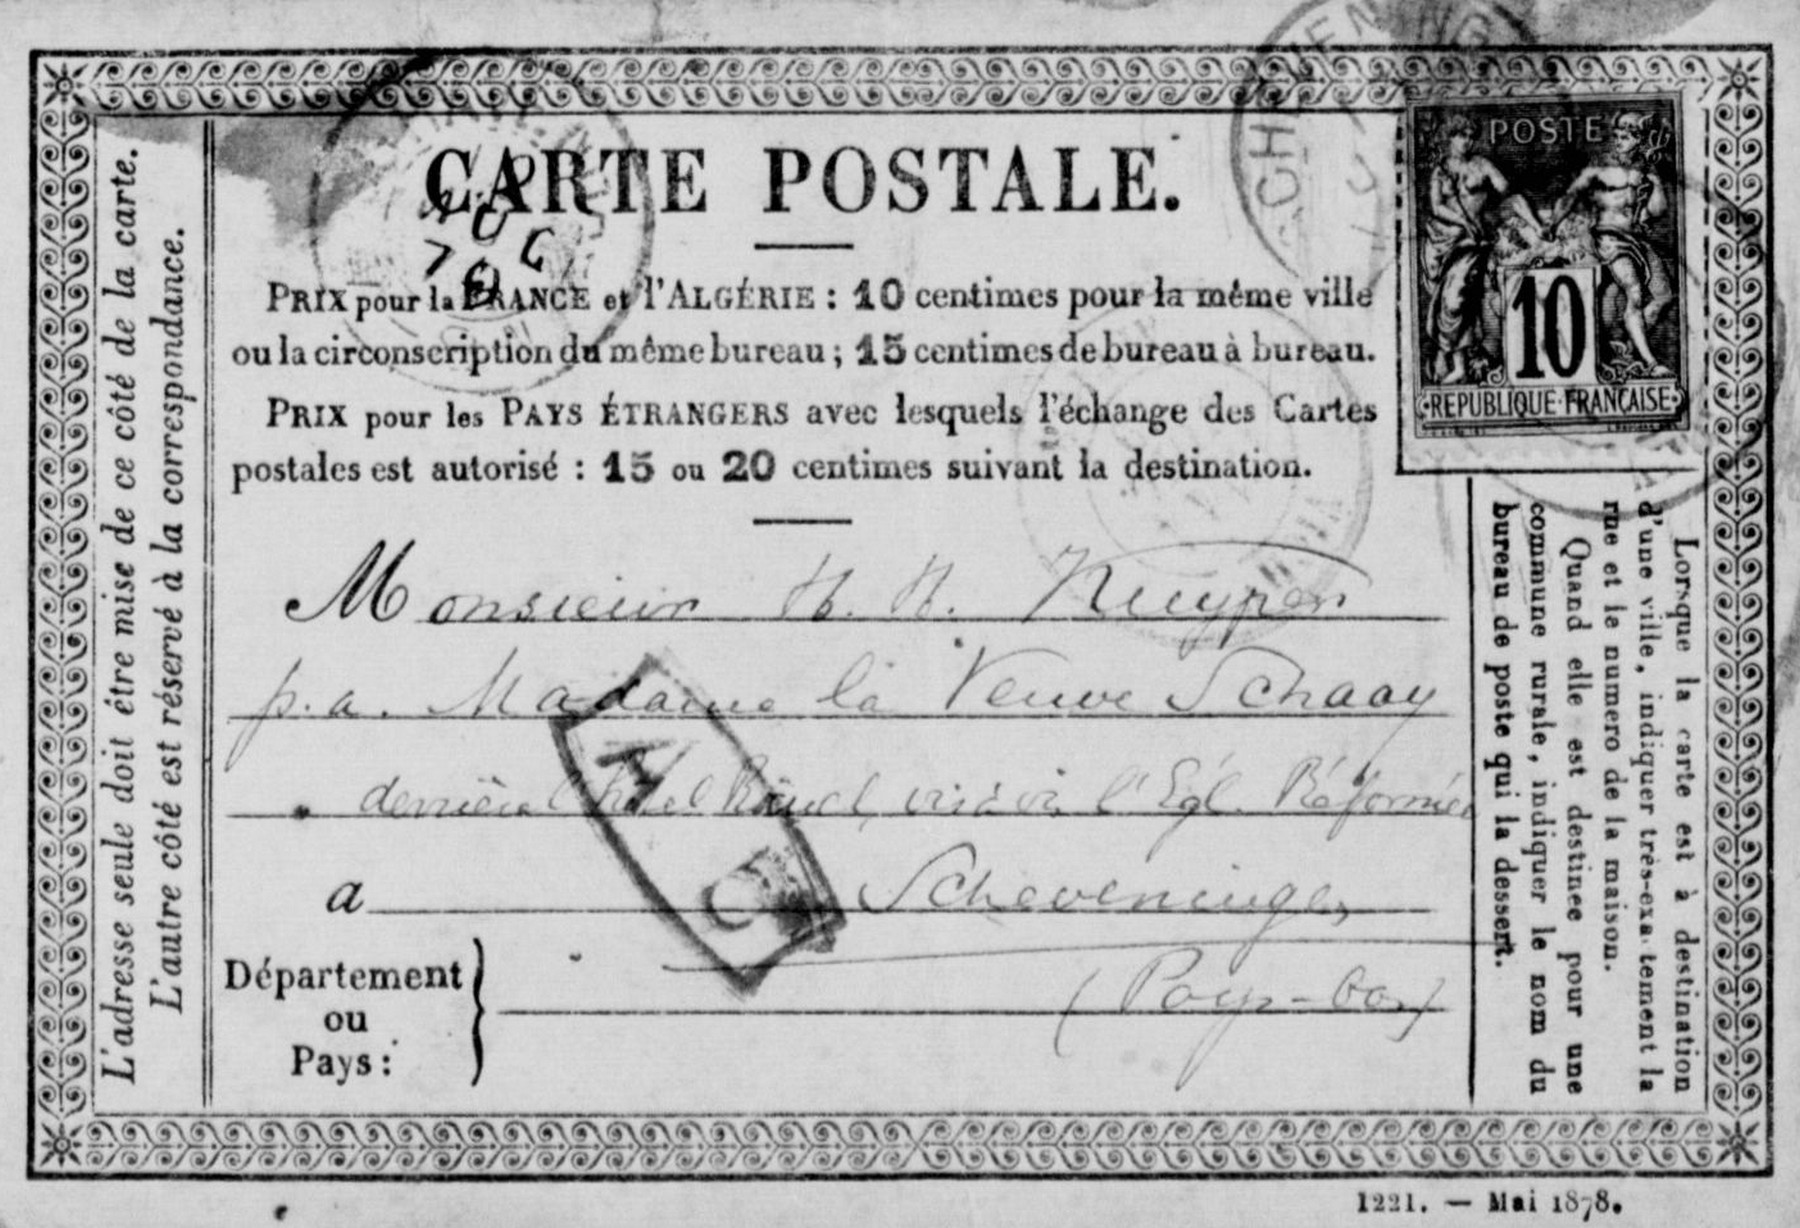 L'adresse seule doit être mise de ce côté de la carte.
L'autre côté est réservé à la correspondance.
CARTE POSTALE.
PRIX pour la FRANCE et l'ALGÉRIE : 10 centimes pour la même ville
ou la circonscription du même bureau ; 15 centimes de bureau à bureau.
PRIX pour les PAYS ÉTRANGERS avec lesquels l'échange des Cartes
postales est autorisé : 15 ou 20 centimes suivant la destination.
POSTE
10
REPUBLIQUE FRANÇAISE
SCHEVENING
Monsieur H. H. Kuyper
p.a. Madame la Veuve Schaay
derrière l'hotel vis à vis l'Egl. Réformée
a Scheveningen
Département
ou
Pays :
(Pays-bas)
Lorsque la carte est à destination
d'une ville, indiquer très-exactement la
rue et le numero de la maison.
Quand elle est destinee pour une
commune rurale, indiquer le nom du
bureau de poste qui la dessert.
1221. — Mai 1878.